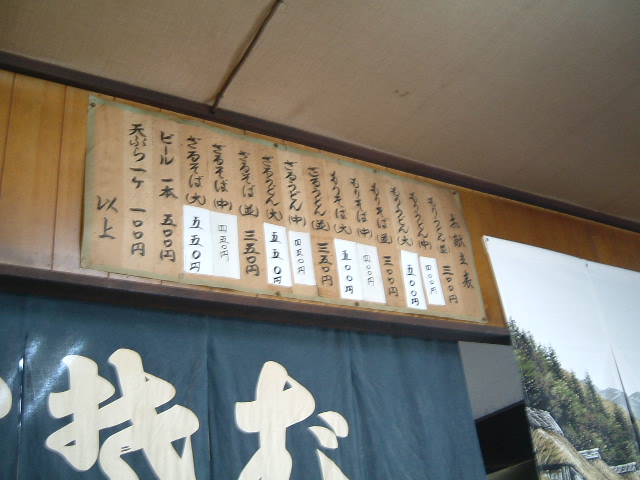 お献立表
もりうどん(並) 三〇〇円
もりうどん(中) 四〇〇円
もりうどん(大) 五〇〇円
もりそば(並) 三〇〇円
もりそば(中) 四〇〇円
もりそば(大) 五〇〇円
ざるうどん(並) 三五〇円
ざるうどん(中) 四五〇円
ざるうどん(大) 五五〇円
ざるそば(並) 三五〇円
ざるそば(中) 四五〇円
ざるそば(大) 五五〇円
ビール 一本 五〇〇円
天ぷら 一ヶ 一〇〇円
以上